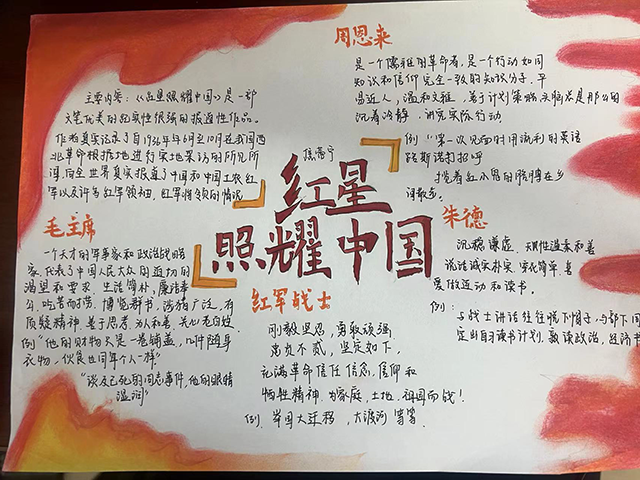 主要内容：《红星照耀中国》是一部
文笔优美的纪实性很强的报道性作品。
作者真实记录了自1936年6月至10月在我国西
北革命根据地进行实地采访的所见所
闻，向全世界真实报道了中国和中国工农红
军以及许多红军领袖、红军将领的情况
周恩来
是一个儒雅的革命者，是一个行动如同
知识和信仰完全一致的知识分子，平
易近人，温和文雅，善于计划策略，头脑总是那么的
沉着冷静，讲究实际行动
例："第一次见面时用流利的英语
跟斯诺打招呼
揽着红小鬼的胳膊在乡
间散步。
红星
照耀中国
毛主席
一个天才的军事家和政治战略
家，代表了中国人民大众的迫切的
渴望和要求 生活简朴，廉洁奉
公，吃苦耐劳，博览群书，涉猎广泛，有
质疑精神，善于思考，为人和善，关心老百姓
例"他的财物只是一卷铺盖，几件随身
衣物，伙食也同每个人一样"
"谈及已死的同志事件，他的眼睛
湿润"
红军战士
刚毅坚忍，勇敢顽强
忠贞不贰，坚定如下，
充满革命信任 信念，信仰和
牺牲精神 为家庭，土地，祖国而战！
例：举国大迁移，大渡河等等
朱德
沉稳谦虚，天性温柔和善
说话诚实朴实，穿花简单，喜
爱做运动和读书。
例：与战士讲话往往脱下帽子，与部下同
定出自读书计划，熟读政治，经济书